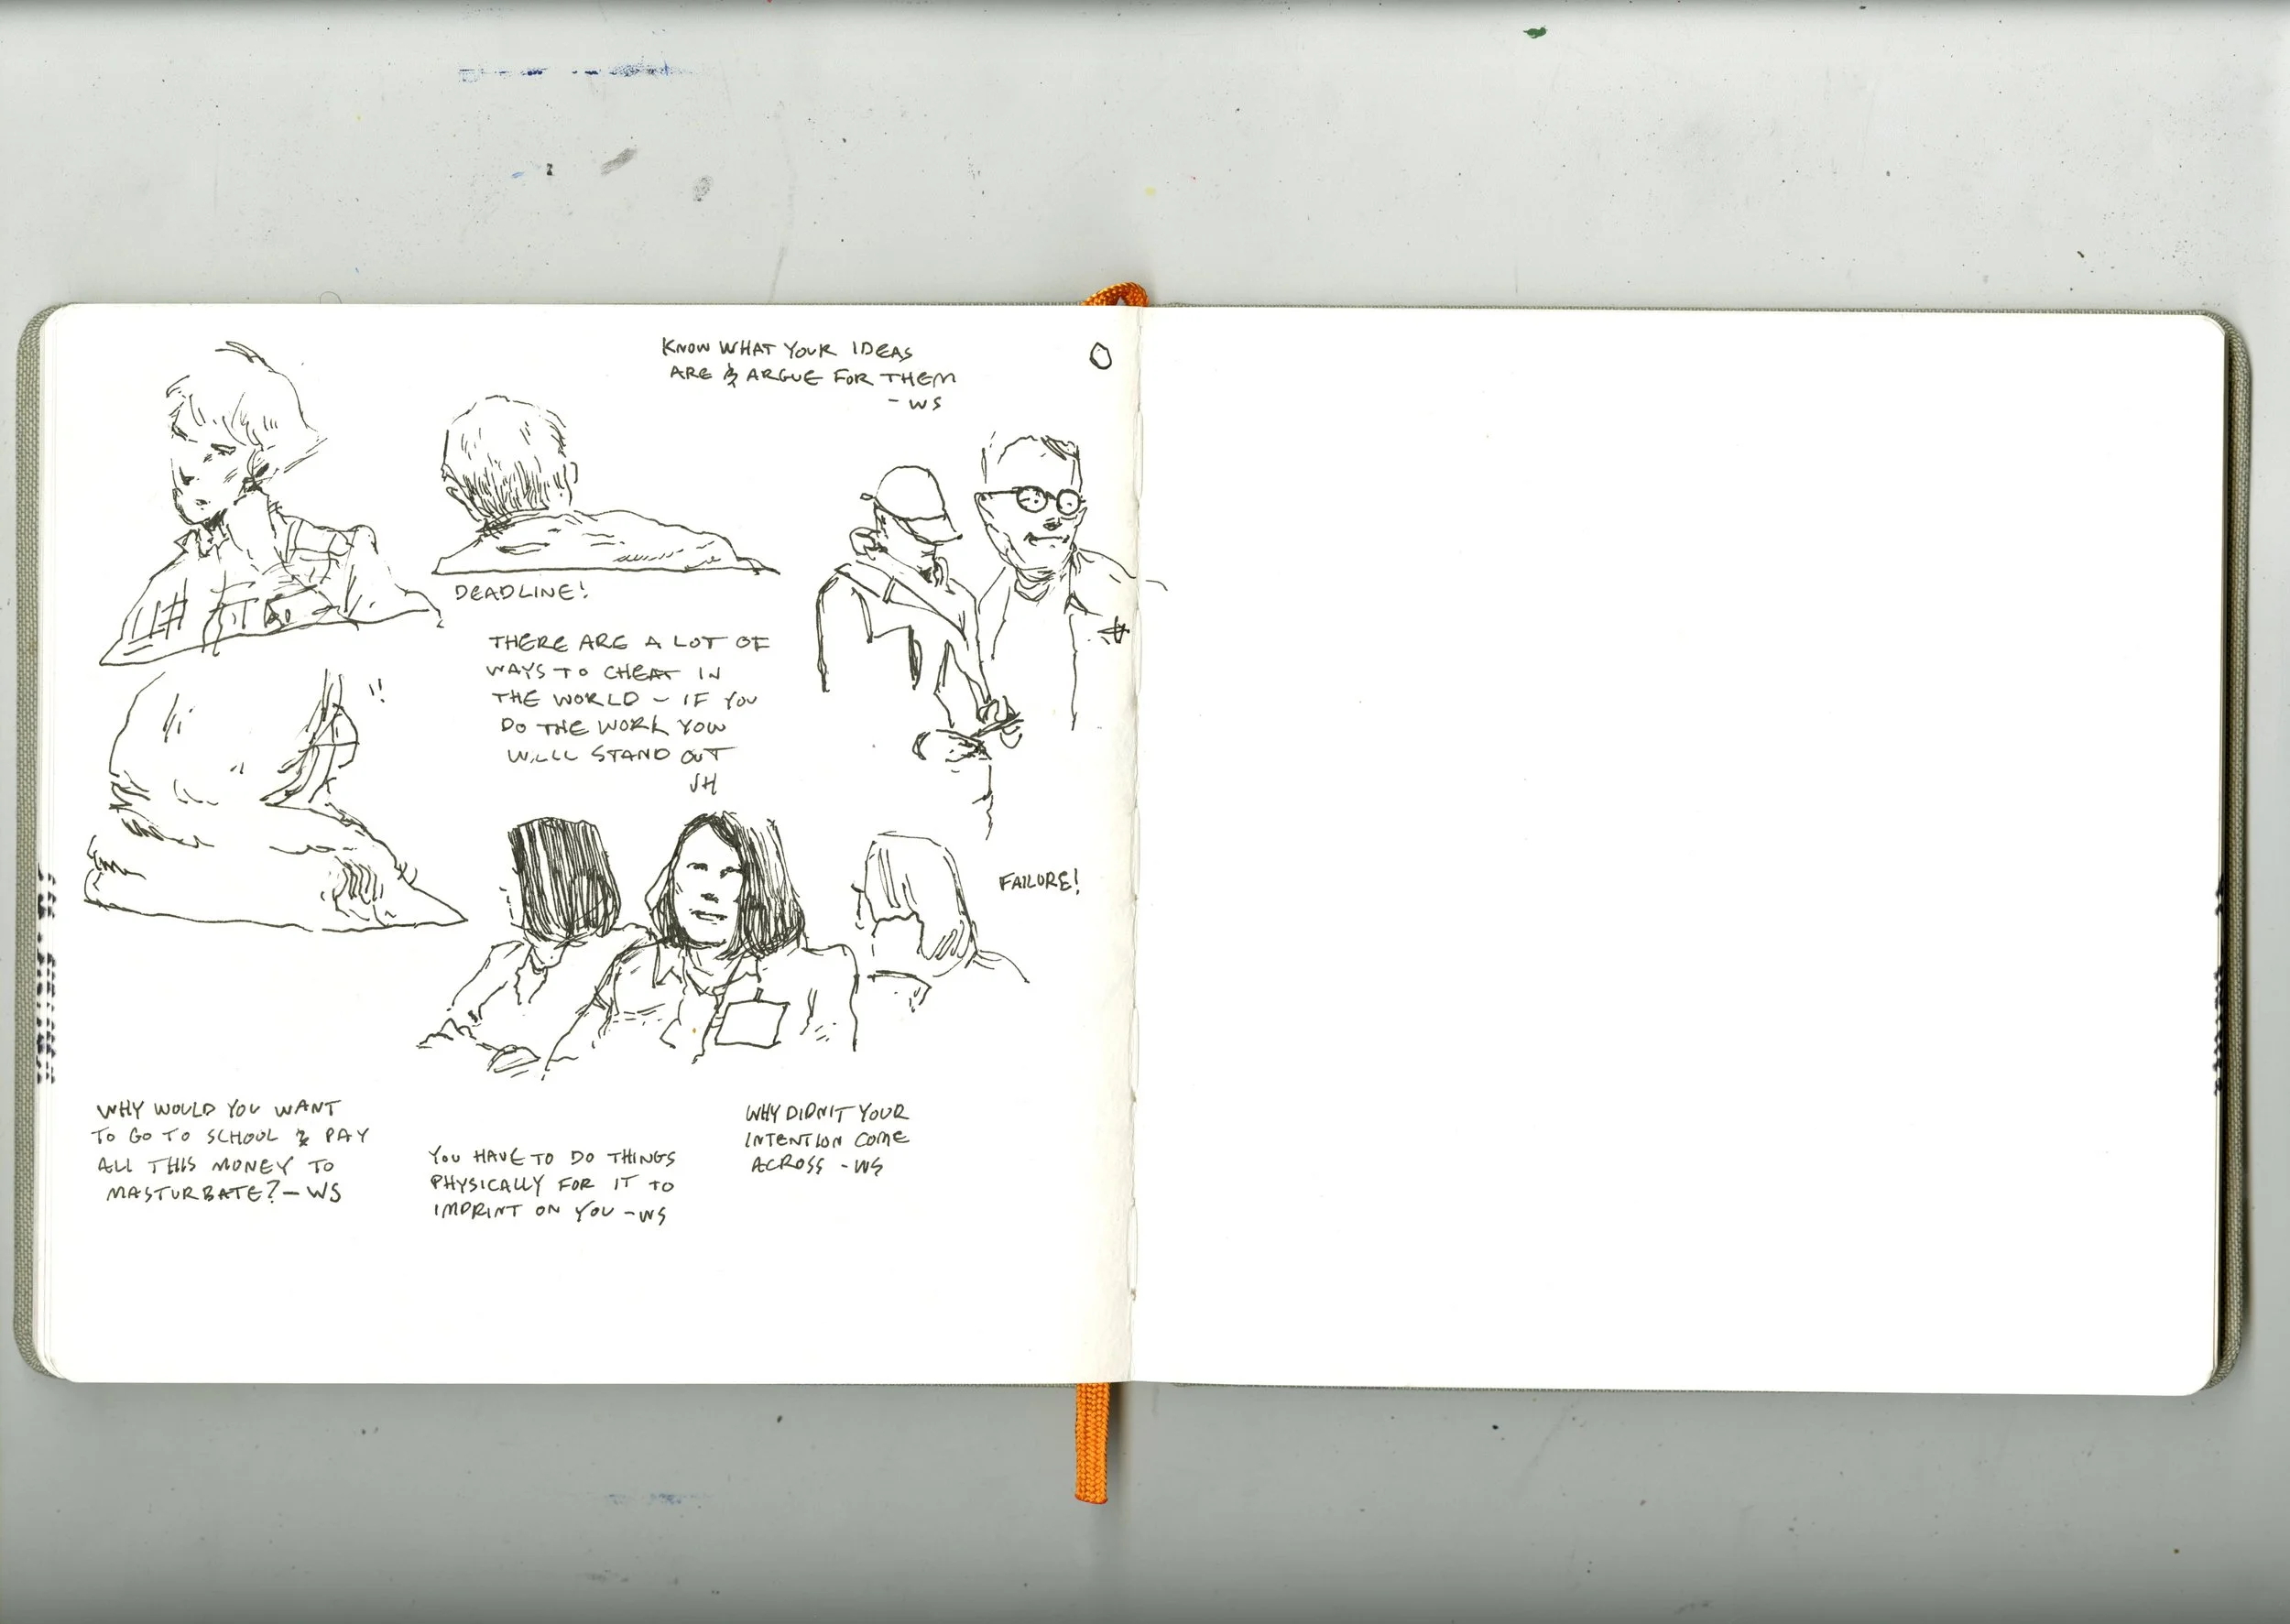 KNOW WHAT YOUR IDEAS
ARE & ARGUE FOR THEM
- WS
DEADLINE!
THERE ARE A LOT OF
WAYS TO CHEAT IN
THE WORLD - IF YOU
DO THE WORK YOU
WILL STAND OUT
JH
!!
FAILURE!
WHY WOULD YOU WANT
TO GO TO SCHOOL & PAY
ALL THIS MONEY TO
MASTURBATE? - WS
YOU HAVE TO DO THINGS
PHYSICALLY FOR IT TO
IMPRINT ON YOU - WS
WHY DIDN'T YOUR
INTENTION COME
ACROSS - WS